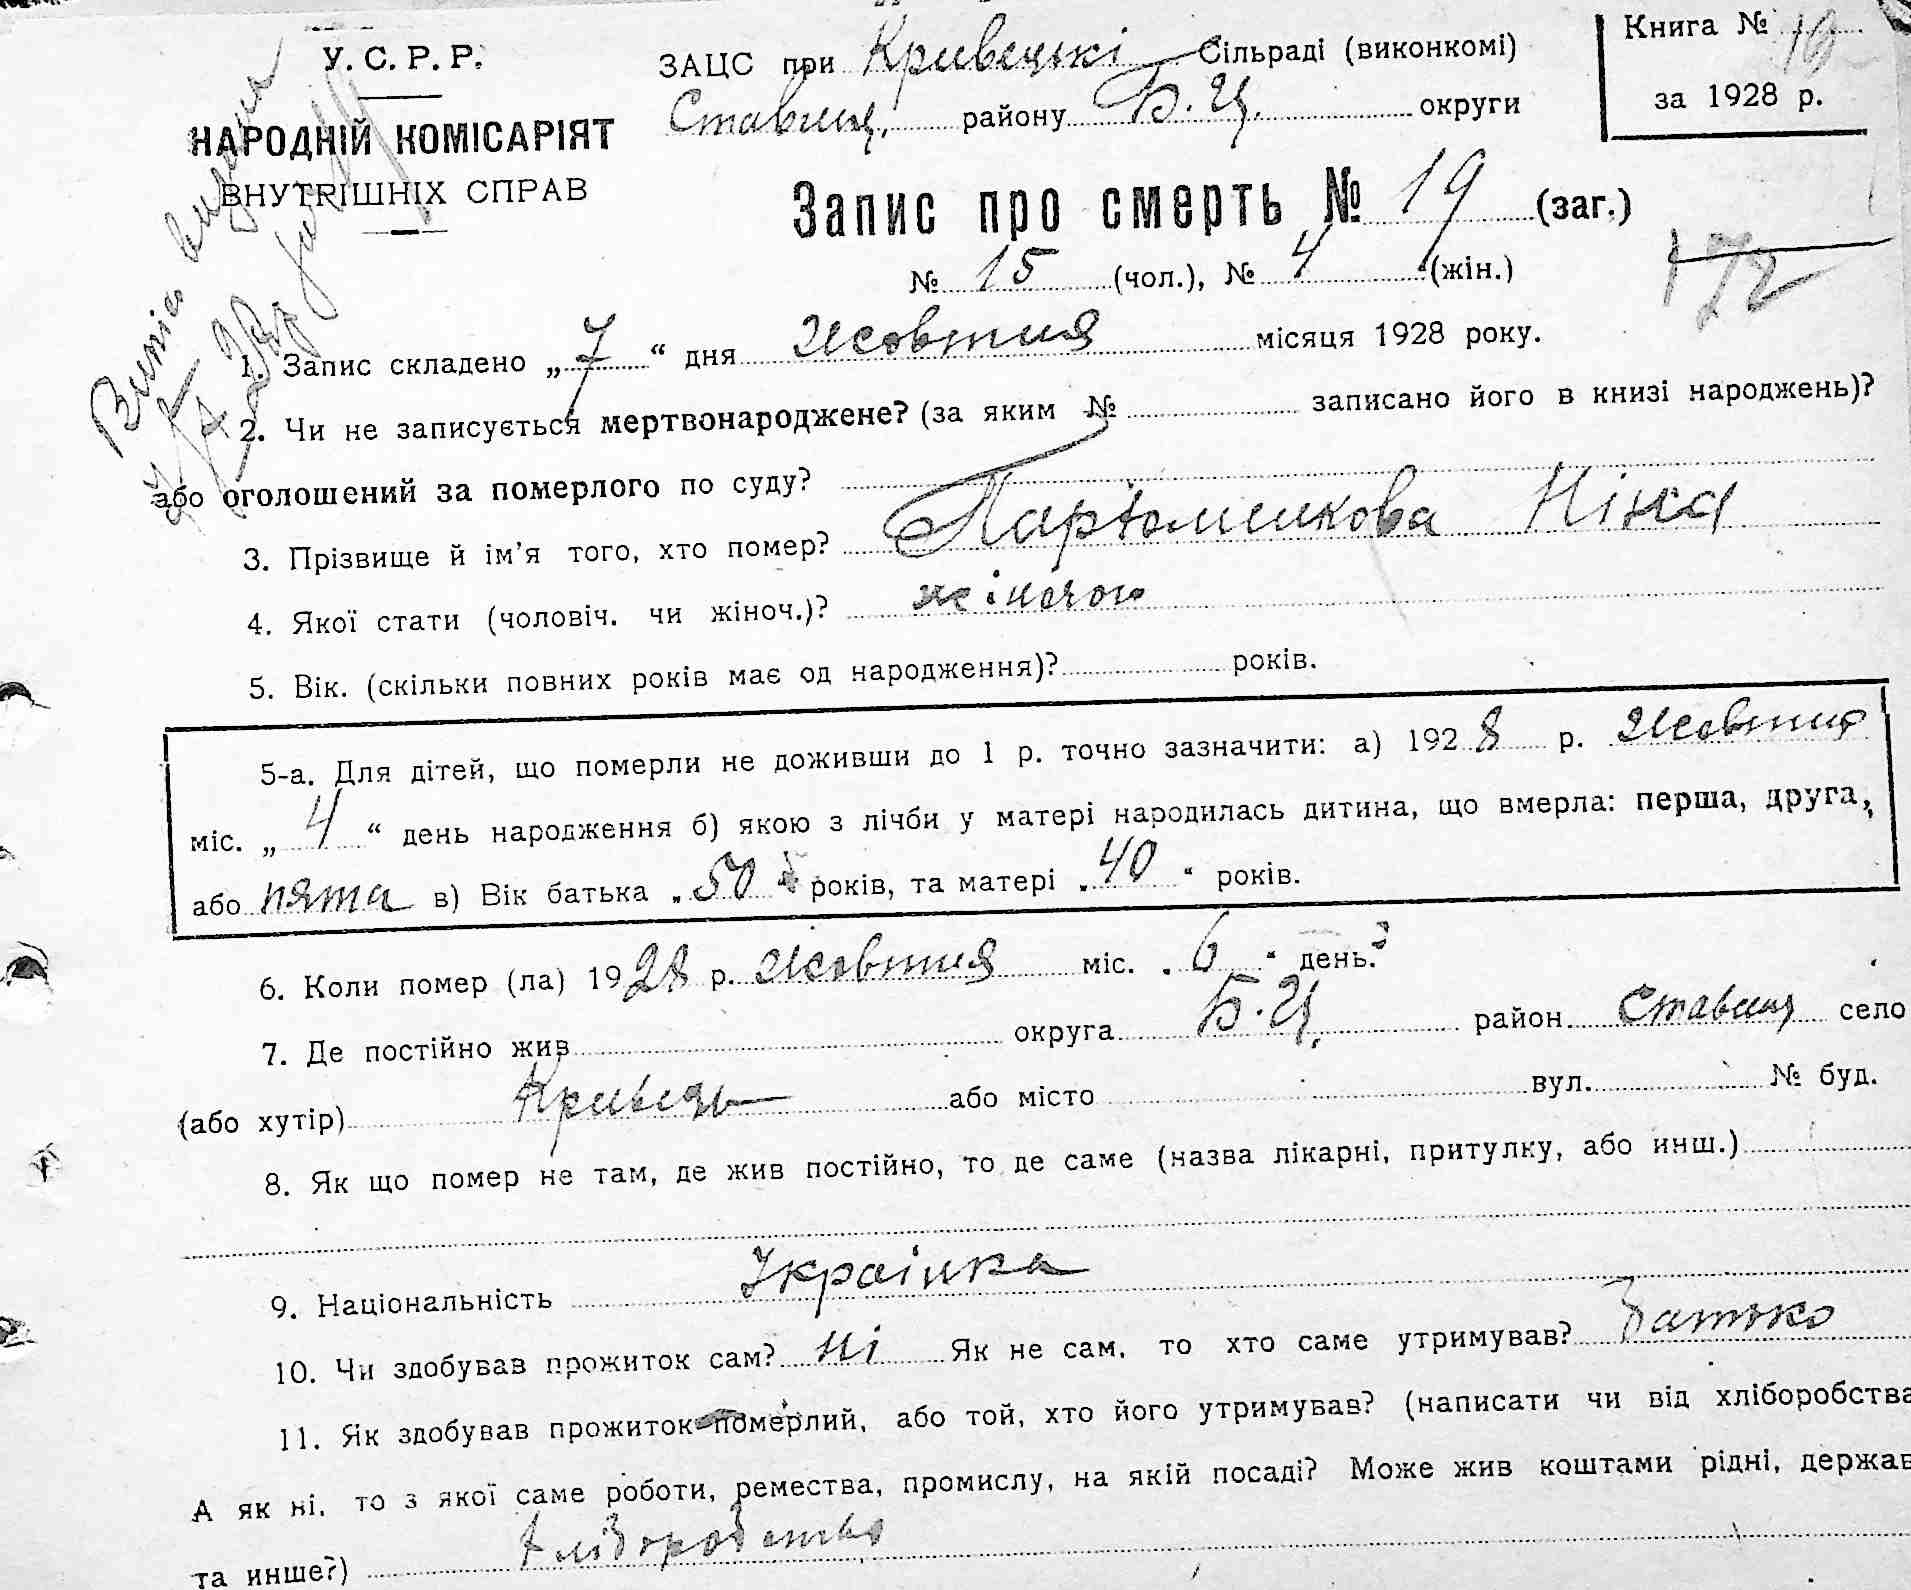 У. С. Р. Р.
НАРОДНІЙ КОМІСАРІЯТ
ВНУТРІШНІХ СПРАВ
ЗАЦС при Кривецькі Сільраді (виконкомі)
Ставищ. району Б. Ц. округи
Книга № 19
за 1928 р.
Запис про смерть № 19 (заг.)
№ 15 (чол.), № 4 (жін.)
172
1. Запис складено „ 7 “ дня Жовтня місяця 1928 року.
2. Чи не записується мертвонароджене? (за яким № записано його в книзі народжень)?
або оголошений за померлого по суду?
3. Прізвище й ім'я того, хто помер? Пархоменкова Ніна
4. Якої стати (чоловіч. чи жіноч.)? жіночої
5. Вік. (скільки повних років має од народження)? років.
5-а. Для дітей, що померли не доживши до 1 р. точно зазначити: а) 1928 р. Жовтня
міс. „ 4 “ день народження б) якою з лічби у матері народилась дитина, що вмерла: перша, друга,
або пята в) Вік батька „ 50 “ років, та матері „ 40 “ років.
6. Коли помер (ла) 1928 р. Жовтня міс. „ 6 “ день?
7. Де постійно жив округа Б. Ц. район Ставищ село
(або хутір) Кривець або місто вул. № буд.
8. Як що помер не там, де жив постійно, то де саме (назва лікарні, притулку, або инш.)
9. Національність Українка
10. Чи здобував прожиток сам? Ні Як не сам, то хто саме утримував? Батько
11. Як здобував прожиток померлий, або той, хто його утримував? (написати чи від хліборобства
А як ні, то з якої саме роботи, ремества, промислу, на якій посаді? Може жив коштами рідні, держав
та инше?) Хліборобство